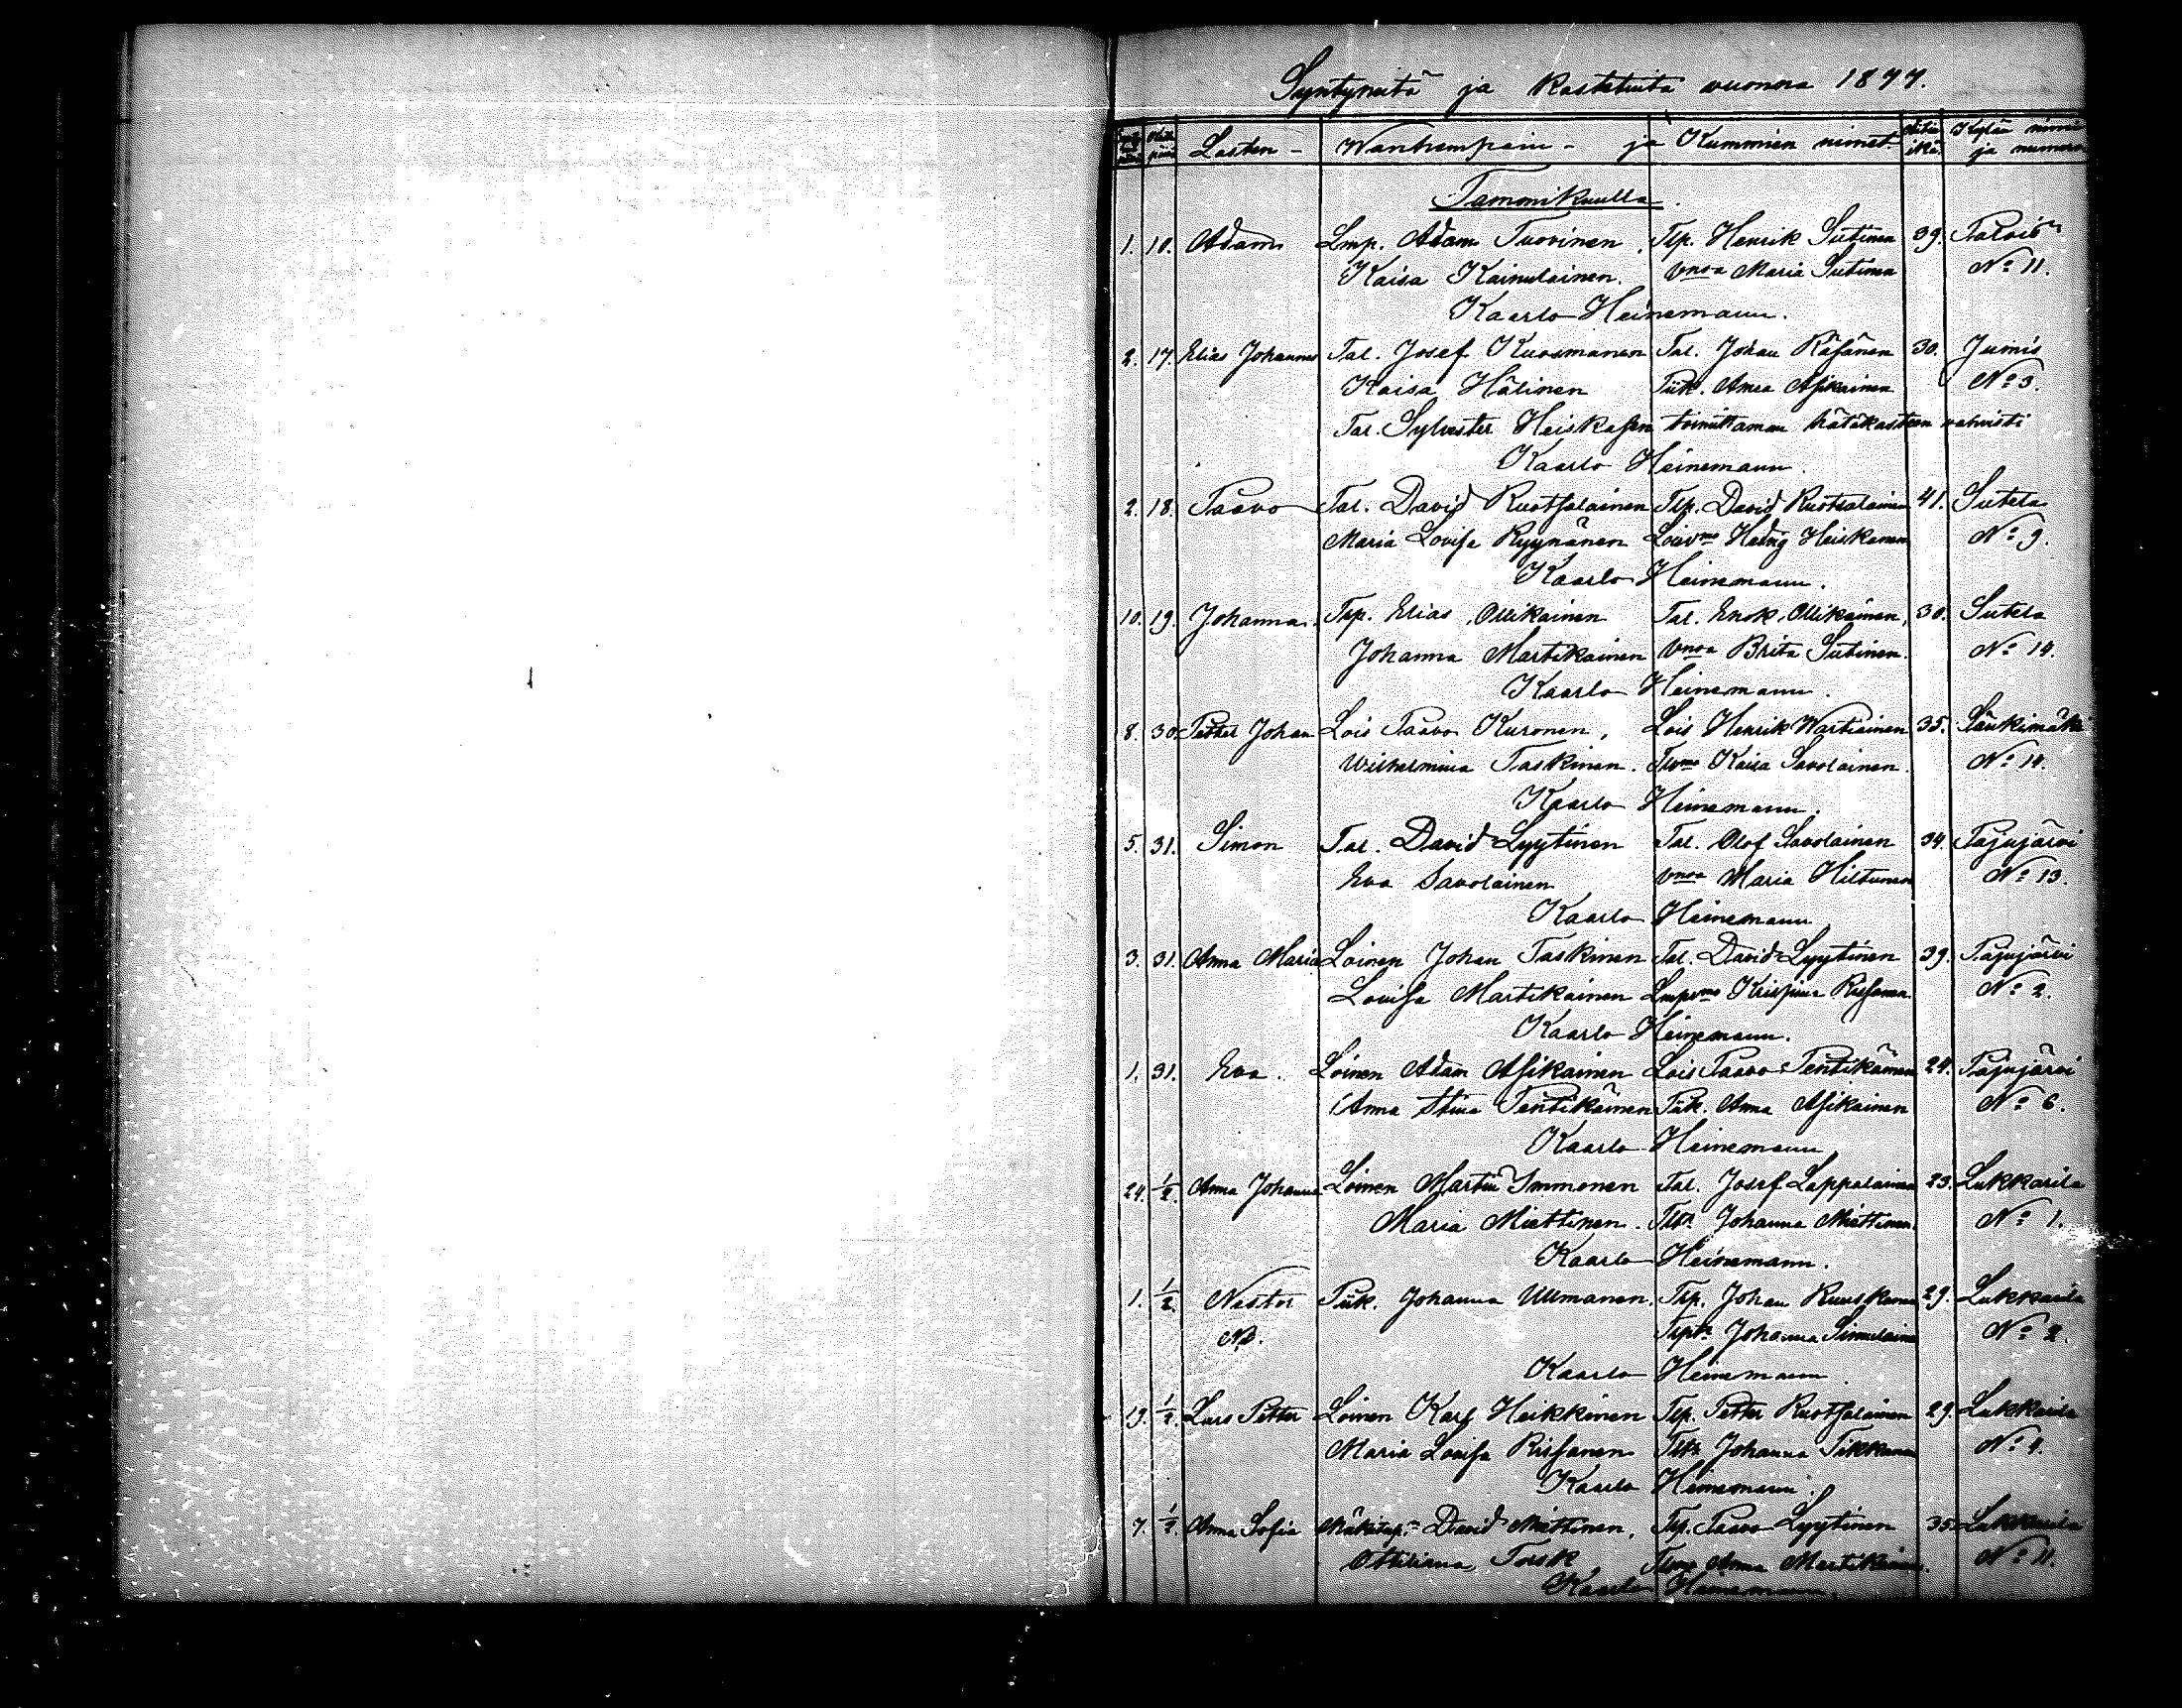 Syntyneitä ja Kastetuita vuonna 1877.
Lasten - Wanhempain - ja Kummien nimet Äitin ikä. Kylän nimi
ja numero
Tammikuulla.
1. 10. Adam Lmp. Adam Tuovinen, Tlp. Henrik Sutinen 39. Talvis
Kaisa Kainulainen. vmoa Maria Sutinen No 11.
Kaarlo Heinemann.
2. 17. Elias Johannes Tal. Josef Kuosmanen Tal. Johan Räsänen 30. Jumis
Kaisa Hälinen Piik. Anna Asikainen No 3.
Tal. Sylvester Heiskasen toimittaman hätäkasteen vahvisti
Kaarlo Heinemann.
2. 18. Paavo Tal. David Ruotsalainen Tlp. David Ruotsalainen 41. Sutela
Maria Lovisa Ryynänen Loisvmo Hedvig Heiskanen No 9.
Kaarlo Heinemann.
10. 19. Johanna. Tlp. Elias Ollikainen Tal. Enok Ollikainen, 30. Sutela
Johanna Martikainen vmoa Brita Sutinen. No 14.
Kaarlo Heinemann.
8. 30. Petter Johan Lois Paavo Kuronen, Lois Henrik Wartiainen 35. Länkimäki
Wilhelmina Taskinen. Tlvmo Kaisa Savolainen. No 14.
Kaarlo Heinemann.
5. 31. Simon Tal. David Lyytinen Tal. Olof Savolainen 34. Pajujärvi
Eva Savolainen vmoa Maria Hiltunen No 13.
Kaarlo Heinemann
3. 31. Anna Maria Loinen Johan Taskinen Tal. David Lyytinen 39. Pajujärvi
Lovisa Martikainen Lmpvmo Krispina Rissanen No 2.
Kaarlo Heinemann.
1. 31. Eva. Loinen Adam Asikainen Lois Paavo Pentikäinen 24. Pajujärvi
Anna Stina Pentikäinen Piik. Anna Asikainen No 6.
Kaarlo Heinemann
24. 1/2. Anna Johanna Loinen Martin Immonen Tal. Josef Lappalainen 23. Lukkarila
Maria Miettinen. Johanna Miettinen. No 1.
Kaarlo Heinemann.
1. 1/2. Nestor Piik. Johanna Ullmanen. Tlp. Johan Ruuskanen 29. Lukkarila
Johanna No 2.
Kaarlo Heinemann
19. 1/2. Lars Petter Loinen Karl Heikkinen Tlp. Petter Ruotsalainen 29. Lukkarila
Maria Lovisa Rissanen Johanna Tikkanen No 4.
Kaarlo Heinemann.
7. 1/2. Anna Sofia Mäkitup. David Miettinen, Tlp. Paavo Lyytinen 35. Lukkarila
Ottiliana Torsk Anna Martikainen. No 11.
Kaarlo Heinemann.